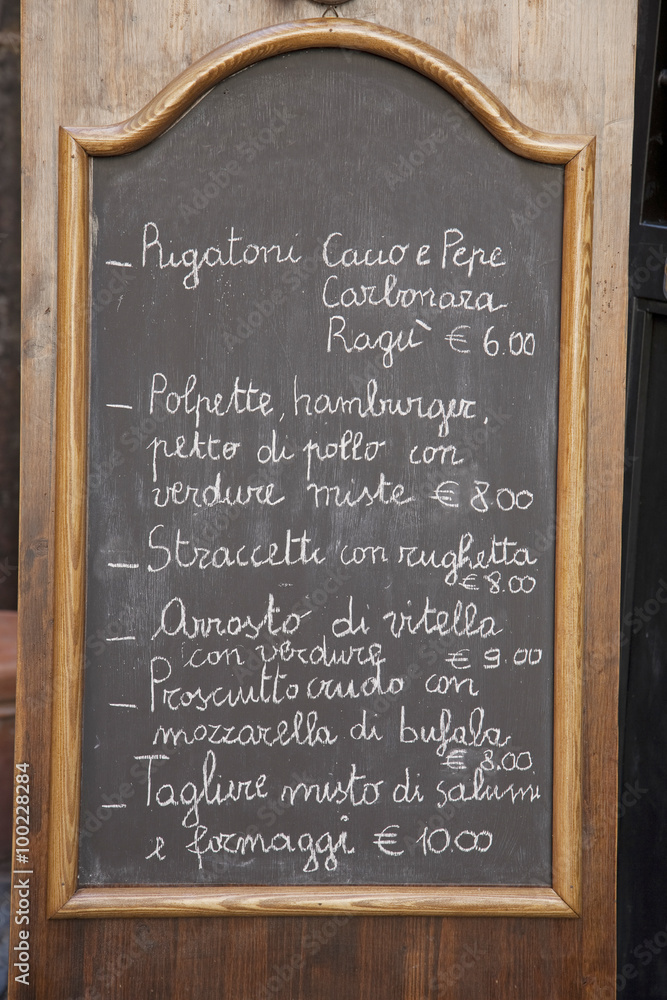 - Rigatoni Cacio e Pepe
Carbonara
Ragù € 6.00
- Polpette, hamburger,
petto di pollo con
verdure miste € 8.00
- Straccetti con rughetta
€ 8.00
- Arrosto di vitella
con verdure € 9.00
- Prosciutto crudo con
mozzarella di bufala
€ 8.00
- Tagliere misto di salumi
e formaggi € 10.00
Adobe Stock | #100228284